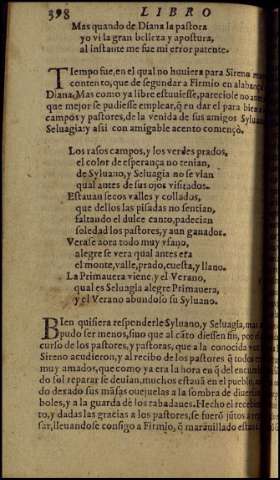 398 LIBRO
Mas quando de Diana la pastora
yo vi la gran belleza y apostura,
al instante me fue mi error patente.
TIempo fue, en el qual no huuiera para Sireno
contento, que de segundar a Firmio en alabança
Diana. Mas como ya libre estuuiesse, pareciole no
que mejor se pudiesse emplear, q̃ en dar el para bien
campos y pastores, de la venida de sus amigos Syluano
Seluagia: y assi con amigable acento començò.
Los rasos campos, y los verdes prados,
el color de esperança no tenian,
de Syluano, y Seluagia no se vian
qual antes de sus ojos visitados.
Estauan secos valles y collados,
que dellos las pisadas no sentian,
faltando el dulce canto, padecian
soledad los pastores, y aun ganados.
Verase aora todo muy vfano,
alegre se vera qual antes era
el monte, valle, prado, cuesta, y llano.
La Primauera viene, y el Verano,
qual es Seluagia alegre Primauera,
y el Verano abundoso su Syluano.
BIen quisiera responderle Syluano, y Seluagia, mas
pudo ser menos, sino que al cãto diessen fin, por
curso de los pastores, y pastoras, que a la conocida voz
Sireno acudieron, y al recibo de los pastores q̃ todos
muy amados, que como ya era la hora en q̃ del encumbra
do sol reparar se deuian, muchos estauã en el pueblo,
do dexado sus mãsas ouejuelas a la sombra de diuersos
boles, y a la guarda de los rabadanes. Hecho el recebimien
to, y dadas las gracias a los pastores, se fuerõ jũtos a
sar, lleuandose consigo a Firmio, q̃ marauillado estaua